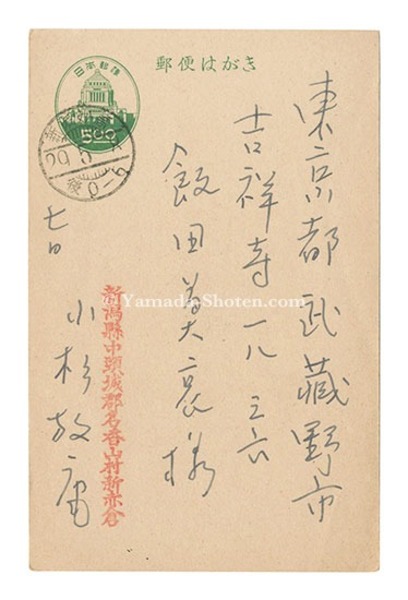 郵便はがき
日本郵便
5.00
29.5
後0-6
東京都武藏野市
吉祥寺一八三六
飯田善國様
七日
小杉放庵
新潟縣中頸城郡名香山村新赤倉
Yamada-Shoten.com